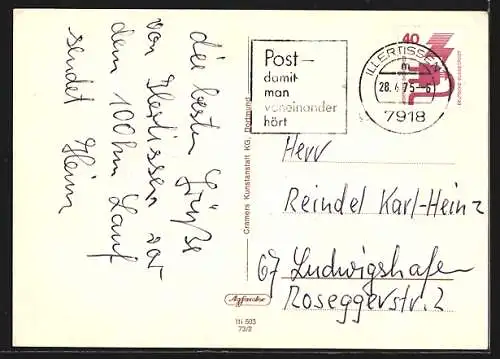 die besten Grüße
von Illertissen vor
dem 100 km Lauf
sendet Heinz
Cramers Kunstanstalt KG, Dortmund
Post –
damit
man
voneinander
hört
ILLERTISSEN
m
28. 6. 75 – 6
7918
40
DEUTSCHE BUNDESPOST
Herr
Reindel Karl-Heinz
67 Ludwigshafen
Roseggerstr. 2